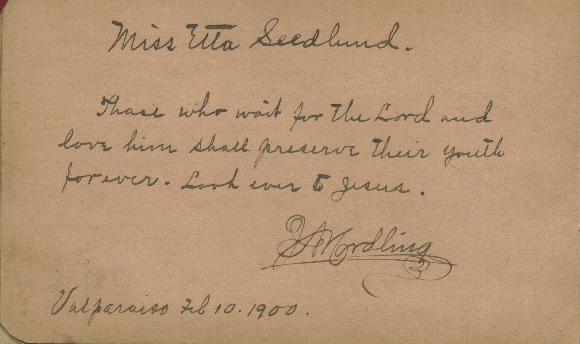 Miss Etta Seedlund.
Those who wait for the Lord and
love him shall preserve their youth
forever. Look ever to Jesus.
Nordling
Valparaiso Feb 10. 1900.